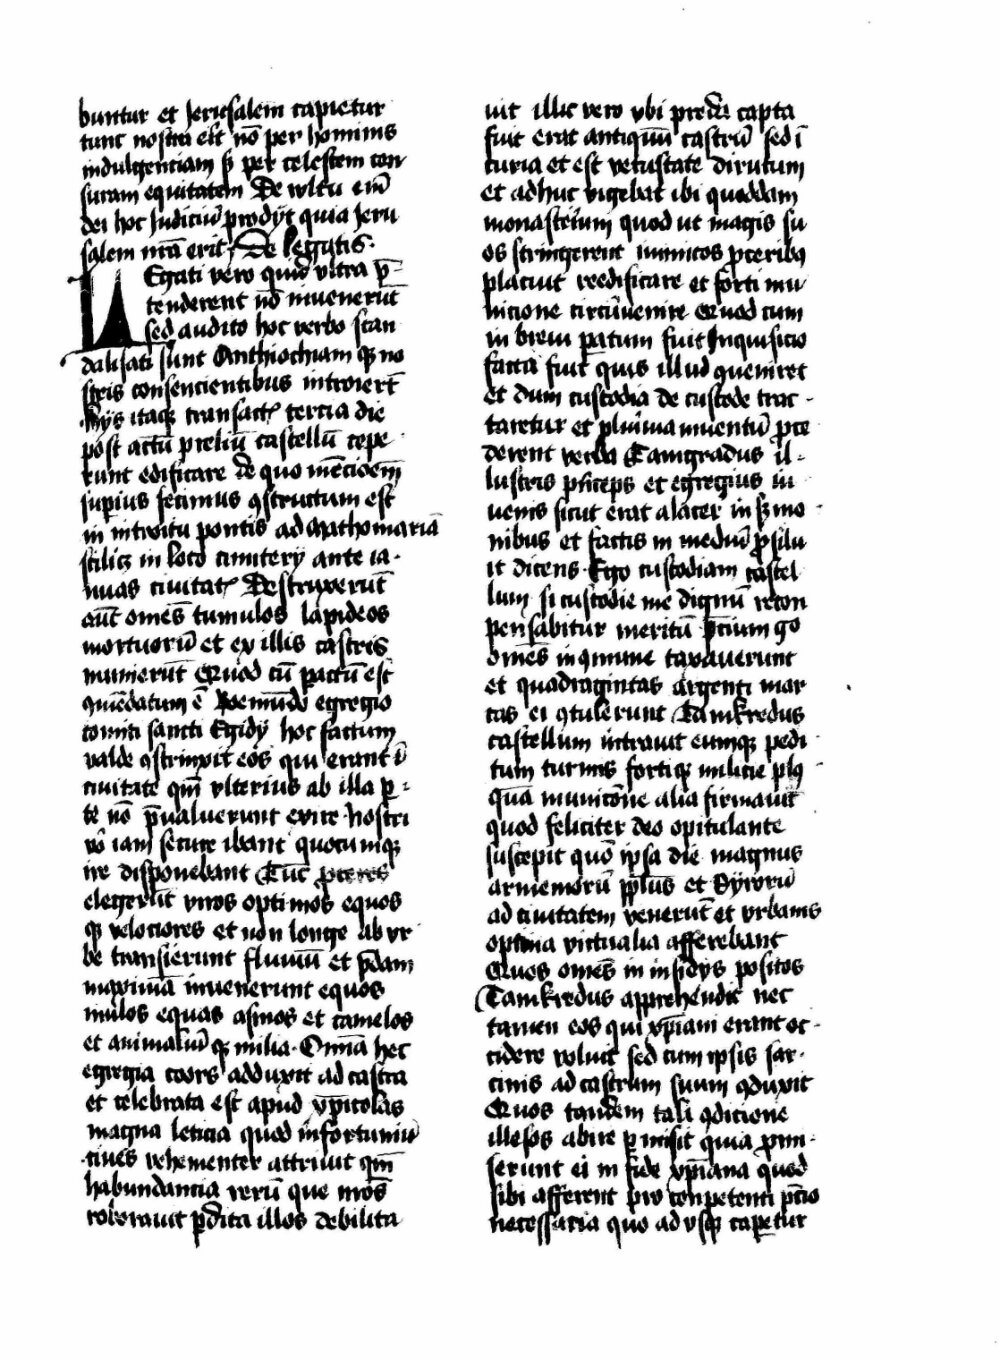 buntur et Jerusalem capietur
tunc nostra est nō per hominis
indulgentiam sꝫ per celestem con
suram equitatem De vultu eni̅
dei hoc Judiciū prodijt quia Jeru
salem nr̄a erit De Legatis
Legati vero quid vltra p̄
tenderent nō inuenerūt
sed audito hoc verbo scan
dalisati sunt Anthiochiam qꝫ no
stris consencientibus introierūt
hijs itaqꝫ transactꝭ tertia die
post actū preliū castellū cepe
runt edificare de quo mēcioēm
supius fecimus ꝯstructum est
in introitu pontis ad mathomariā
scilicꝫ in loco cimiterij ante ia
nuas ciuitatꝭ Destruxerūt
aūt omēs tumulos lapideos
mortuorū et ex illis castris
munierūt Quod cū pactū est
ꝯmēdatum ē Boemūdo egregio
comiti sancti Egidij hoc factum
valde ꝯstrinxit eos qui erant ī
ciuitate qm̄ vlterius ab illa p
te nō p̄ualuerunt exire hostri
v̄o iam secure ibant quocumqꝫ
ire disponebant Tūc pceres
elegerūt viros optimos equos
qꝫ velociores et non longe ab vr
be transierunt fluuiū et p̄dam
maximā inuenerunt equos
mulos equas asinos et camelos
et animaliū qꝫ milia Omīa hec
egregia coors adduxit ad castra
et celebrata est apud xp̄icolas
magna leticia quod infortuniū
ciues vehementer attriuit qm̄
habundancia rerū que nr̄os
roborauit pdita illos debilita
uit illic vero vbi preda capta
fuit erat antiquū castrū sed ī
curia et est vetustate dirutum
et adhuc vigebat ibi quoddam
monasterium quod ut magis su
os stringerent inimicos pceribꝫ
placuit reedificare et forti mu
nicione circūuenire Quod cum
in breui patum fuit Inquisicio
facta fuit quis illud queniret
et dum custodia de custode trac
taretur et plurima inuentū pce
derent verba Tamgradus il
lustris pnceps et egregius iu
uenis sicut erat alacer in sermo
nibus et factis in mediū psilu
it dicens Ego custodiam castel
lum si custodie me dignū recon
pensabitur meritū pcium go
omēs in ꝯmune taxauerunt
et quadragintas argenti mar
cas ei ꝯtulerunt Tamkredus
castellum intrauit eumqꝫ pedi
tum turmis fortiqꝫ milicie plꝰ
quā municōne alia firmauit
quod feliciter deo opitulante
suscepit quō ipsa die magnus
armenorū pp̄lus et Syrorū
ad ciuitatem venerūt et vrbanis
optima victualia afferebant
Quos omēs in insidijs positos
Tamkredus apprehendit nec
tamen eos qui xp̄iani erant oc
cidere voluit sed cum ipsis sar
cinis ad castrum suum ꝯduxit
Quos tandem tali ꝯdicione
illesos abire pmisit quia pmi
serunt ei in fide xp̄iana quod
sibi afferent pro conpetenti p̄cio
necessaria quo ad vsqꝫ capetur